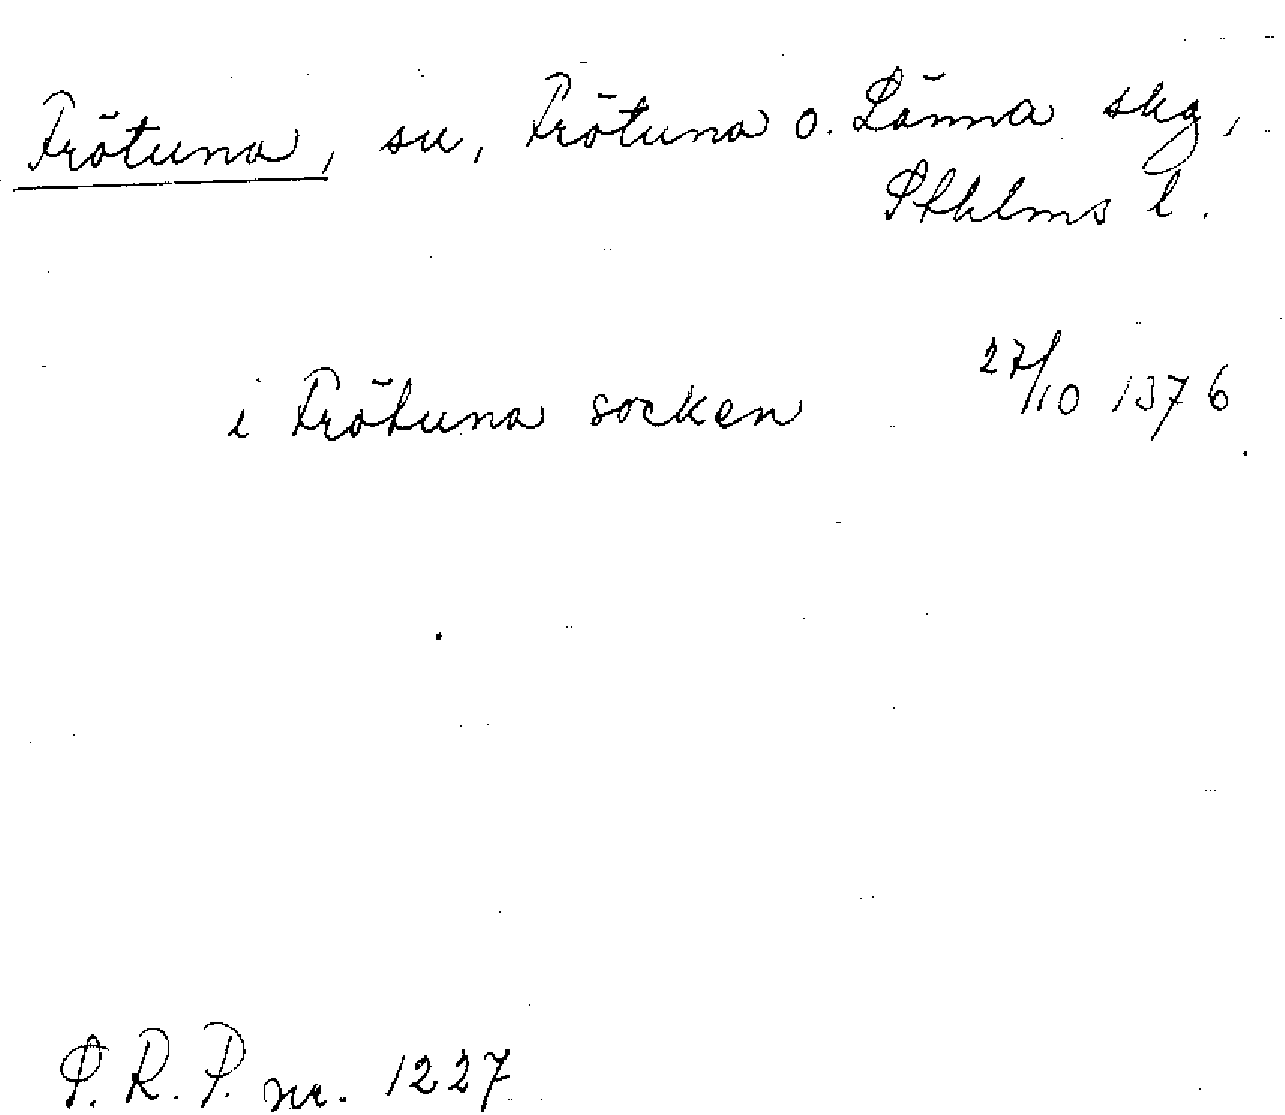 Frötuna, sn, Frötuna o. Länna skg,
Sthlms l.
i Frötuna socken 27/10 1376
S. R. P. nr. 1227